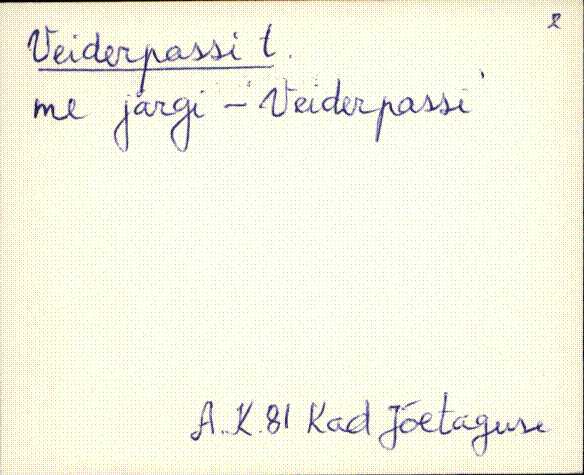 2
Veiderpassi t.
me järgi - 'Veiderpassi'
A.K.81 Kad Jõetaguse